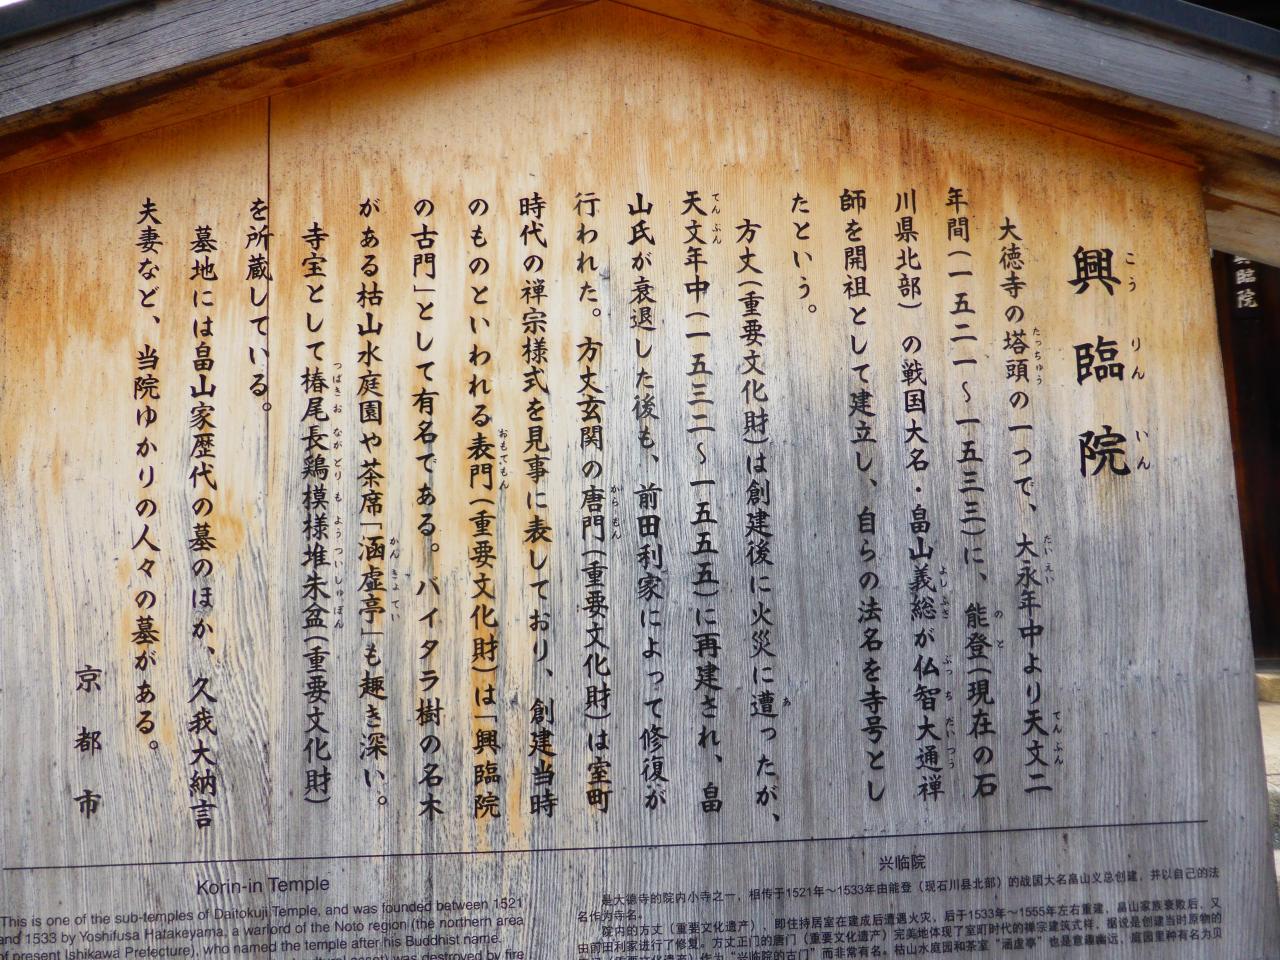 興臨院
大徳寺の塔頭の一つで、大永年中より天文二
年間(一五二一～一五三三)に、能登(現在の石
川県北部)の戦国大名・畠山義総が仏智大通禅
師を開祖として建立し、自らの法名を寺号とし
たという。
方丈(重要文化財)は創建後に火災に遭ったが、
天文年中(一五三二～一五五五)に再建され、畠
山氏が衰退した後も、前田利家によって修復が
行われた。方丈玄関の唐門(重要文化財)は室町
時代の禅宗様式を見事に表しており、創建当時
のものといわれる表門(重要文化財)は「興臨院
の古門」として有名である。バイタラ樹の名木
がある枯山水庭園や茶席「涵虚亭」も趣き深い。
寺宝として椿尾長鶏模様堆朱盆(重要文化財)
を所蔵している。
墓地には畠山家歴代の墓のほか、久我大納言
夫妻など、当院ゆかりの人々の墓がある。
京都市
Korin-in Temple
This is one of the sub-temples of Daitokuji Temple, and was founded between 1521
and 1533 by Yoshifusa Hatakeyama, a warlord of the Noto region (the northern area
of present Ishikawa Prefecture), who named the temple after his Buddhist name.
was destroyed by fire
兴临院
是大德寺的院内小寺之一，相传于1521年～1533年由能登（现石川县北部）的战国大名畠山义总创建，并以自己的法
名作为寺名。
院内的方丈（重要文化遗产），即住持居室在建成后遭遇火灾，后于1533年～1555年左右重建，畠山家族衰败后，又
由前田利家进行了修复。方丈正门的唐门（重要文化遗产）完美地体现了室町时代的禅宗建筑式样，据说是创建当时原物的
（重要文化遗产）作为“兴临院的古门”而非常有名。枯山水庭园和茶室“涵虚亭”也是意趣幽远，庭园里种有名为贝
臨院